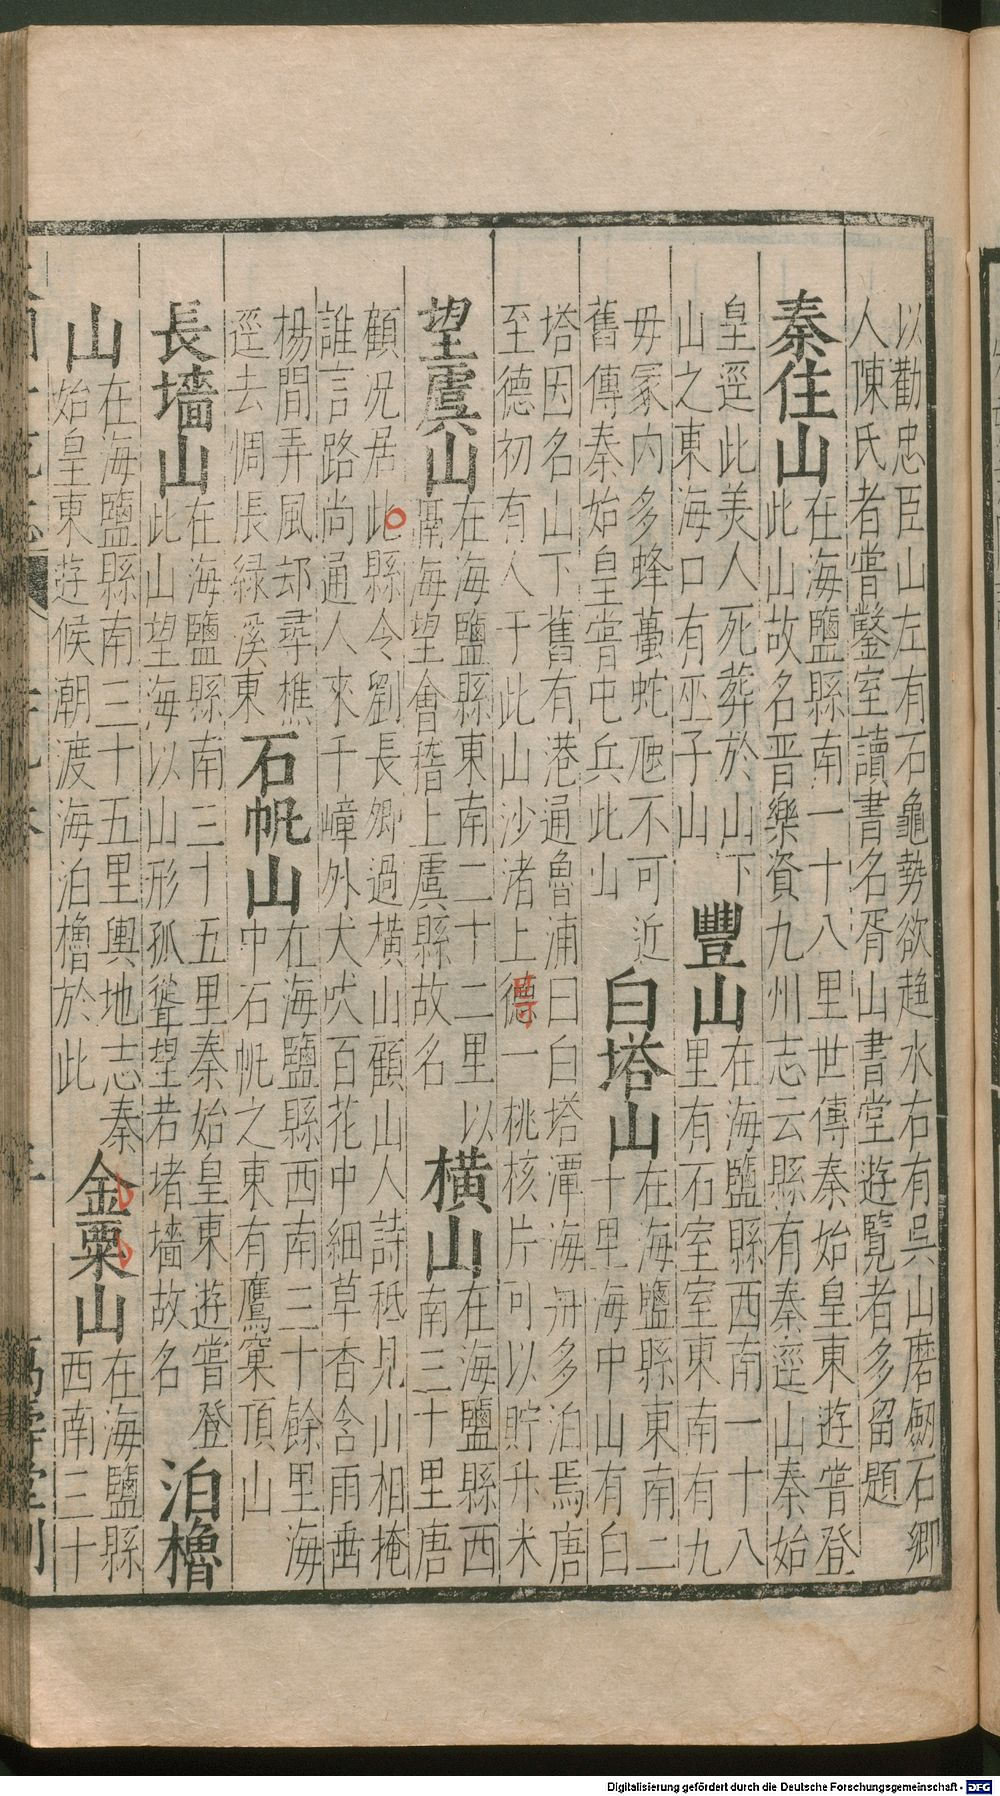 以勸忠臣山左有石龜勢欲趨水右有吳山磨劔石鄉
人陳氏者嘗鑿室讀書名胥山書堂遊覽者多留題
秦住山
在海鹽縣南一十八里世傳秦始皇東遊嘗登
此山故名晋樂資九州志云縣有秦逕山秦始
皇逕此美人死葬於山下
山之東海口有巫子山
豐山
在海鹽縣西南一十八
里有石室室東南有九
毋冡内多蜂蠆蛇虺不可近
舊傳秦始皇嘗屯兵此山
白塔山
在海鹽縣東南二
十里海中山有白
塔因名山下舊有港通魯浦曰白塔潭海舟多泊焉唐
至德初有人于此山沙渚上德一桃核片可以貯升米
望虞山
在海鹽縣東南二十二里以
瀕海望會稽上虞縣故名
橫山
在海鹽縣西
南三十里唐
顧况居此縣令劉長卿過橫山顧山人詩秪見山相掩
誰言路尚通人來千嶂外犬吠百花中細草香含雨垂
楊間弄風却尋樵
逕去惆悵緑溪東
石帆山
在海鹽縣西南三十餘里海
中石帆之東有鷹窠頂山
長墻山
在海鹽縣南三十五里秦始皇東遊嘗登
此山望海以山形孤聳望若堵墻故名
泊櫓
山
在海鹽縣南三十五里輿地志秦
始皇東遊候潮渡海泊櫓於此
金粟山
在海鹽縣
西南三十
Digitalisierung gefördert durch die Deutsche Forschungsgemeinschaft - DFG